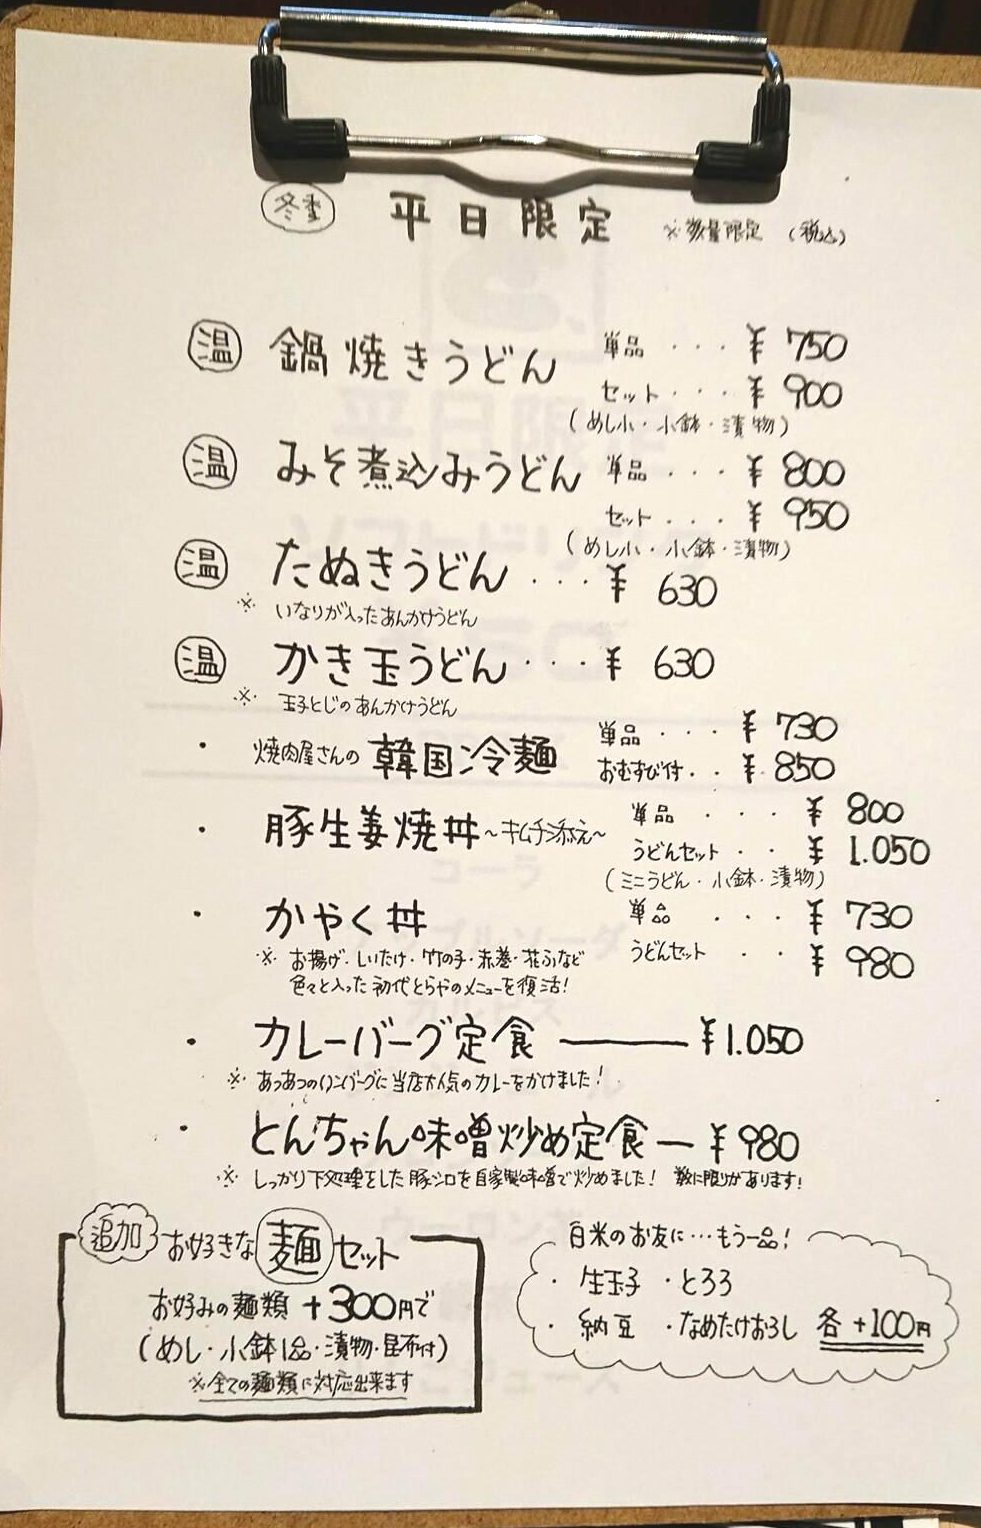 冬季 平日限定 ※数量限定 (税込)
温 鍋焼きうどん 単品 ・・・ ¥750
セット・・・ ¥900
(めし小・小鉢・漬物)
温 みそ煮込みうどん 単品 ・・・ ¥800
セット・・・ ¥950
(めし小・小鉢・漬物)
温 たぬきうどん ・・・¥ 630
※ いなりが入ったあんかけうどん
温 かき玉うどん・・・¥ 630
※ 玉子とじのあんかけうどん
・ 焼肉屋さんの 韓国冷麺 単品 ・・・ ¥730
おむすび付・・ ¥850
・ 豚生姜焼丼 ~キムチ添え~ 単品 ・・・ ¥800
うどんセット ・・ ¥1.050
(ミニうどん・小鉢・漬物)
・ かやく丼 単品 ・・・ ¥730
うどんセット ・・ ¥980
※ お揚げ・しいたけ・竹の子・赤巻・花ふなど
色々と入った初代とらやのメニューを復活!
・ カレーバーグ定食 ―――¥1.050
※ あつあつのハンバーグに当店大人気のカレーをかけました!
・ とんちゃん味噌炒め定食 ― ¥980
※ しっかり下処理をした豚シロを自家製味噌で炒めました! 数に限りがあります!
追加 お好きな麺セット
お好みの麺類 +300円で
(めし・小鉢1品・漬物・昆布付)
※全ての麺類に対応出来ます
白米のお友に…もう一品!
・ 生玉子 ・とろろ
・ 納豆 ・なめたけおろし 各+100円